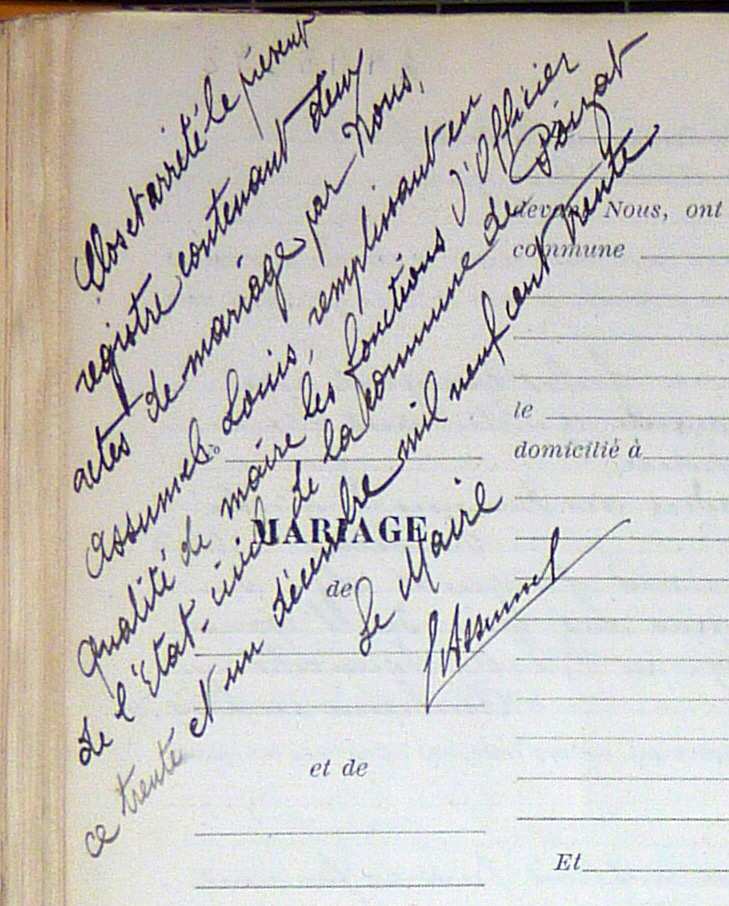 Clos et arrêté le présent
registre contenant deux
actes de mariage par Nous,
Assumel Louis, remplissant en
qualité de maire les fonctions d'Officier
de l'Etat-civil de la commune de Poizat
ce trente et un décembre mil neuf cent trente
Le Maire
LAssumel
devant Nous, ont
commune
le
domicilié à
MARIAGE
de
et de
Et